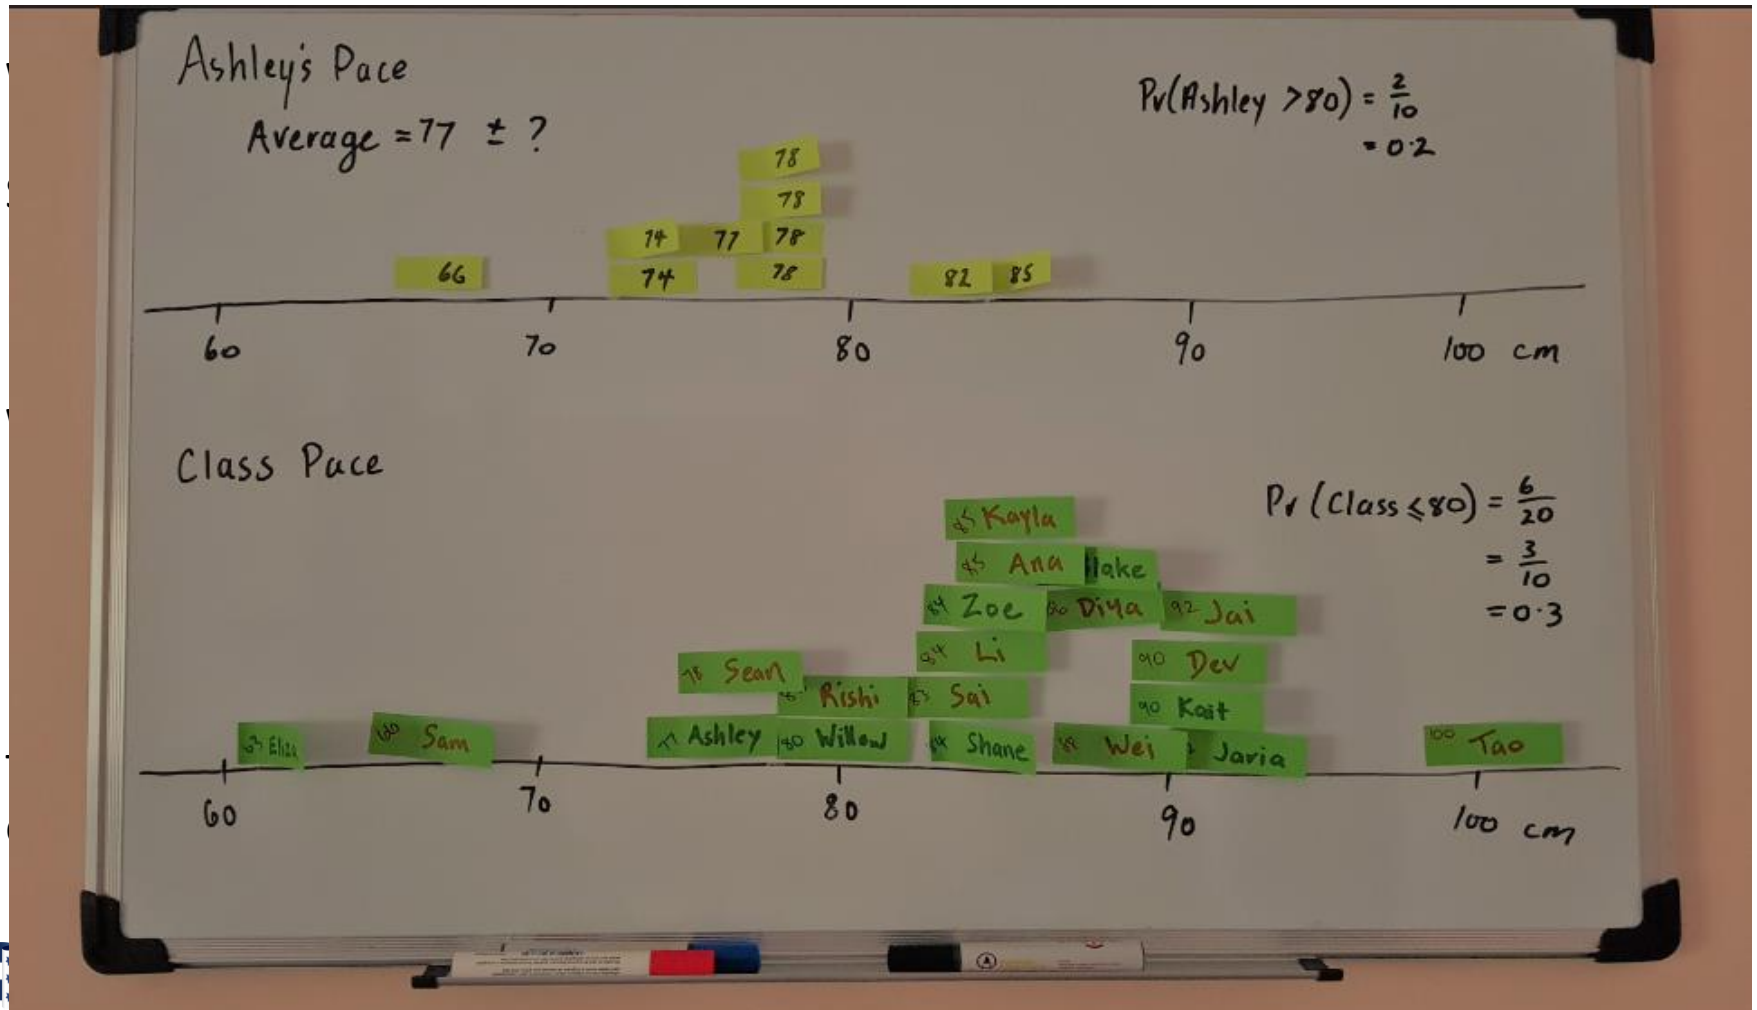 Ashley's Pace
Average = 77 ± ?
Pr(Ashley >80) = 2/10
= 0.2
78
78
74 77 78
66 74 78 82 85
60 70 80 90 100 cm
Class Pace
Pr (Class ≤80) = 6/20
= 3/10
= 0.3
85 Kayla
85 Ana lake
84 Zoe Diya 92 Jai
84 Li 90 Dev
78 Sean
Rishi 83 Sai 90 Kait
63 Eliza Sam 77 Ashley 80 Willow 84 Shane 88 Wei Javia 100 Tao
60 70 80 90 100 cm